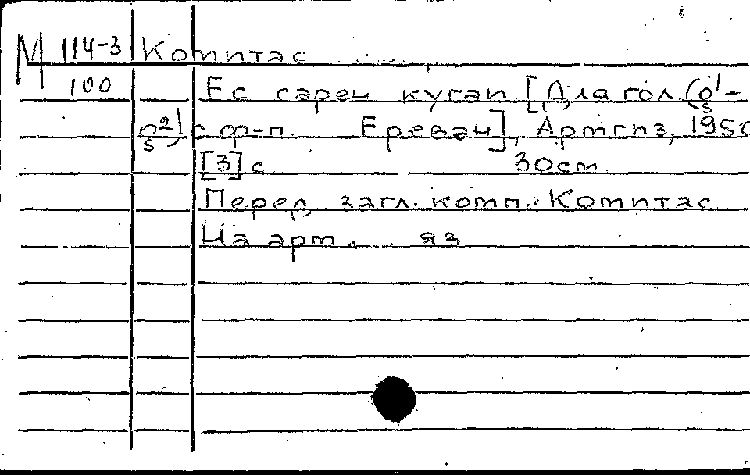 М 114-3 Комитас
100 Ес сарен кугаи [Для гол. (o¹-
o²) с ф-п. Ереван], Армгиз, 1950
[3] с 30 cm.
Перед загл. комп.: Комитас
На арм. яз